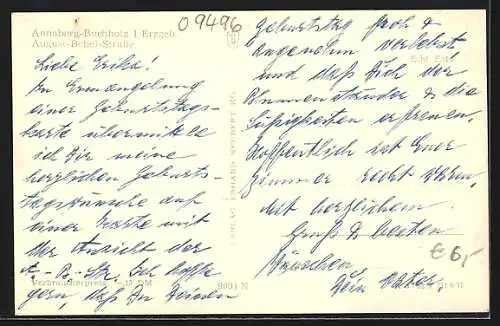 Annaberg-Buchholz i. Erzgeb.
August-Bebel-Straße
09496
Liebe Erika!
In Ermangelung
einer Geburtstags-
karte übermittle
ich Dir meine
herzlichen Geburts-
tagswünsche auf
einer Karte mit
der Ansicht der
A.-B.-Str. Ich hoffe
gern, daß Du Deinen
Verbraucherpreis -,15 DM
9003 N
VERLAG ERHARD NEUBERT KG.
Echt Foto
Geburtstag froh &
angenehm verlebst
und daß Dich der
Blumenständer & die
Süßigkeiten erfreuen.
Hoffentlich ist Euer
Zimmer recht warm.
Mit herzlichem
Gruß & besten
Wünschen
Dein Vater.
€ 6,-